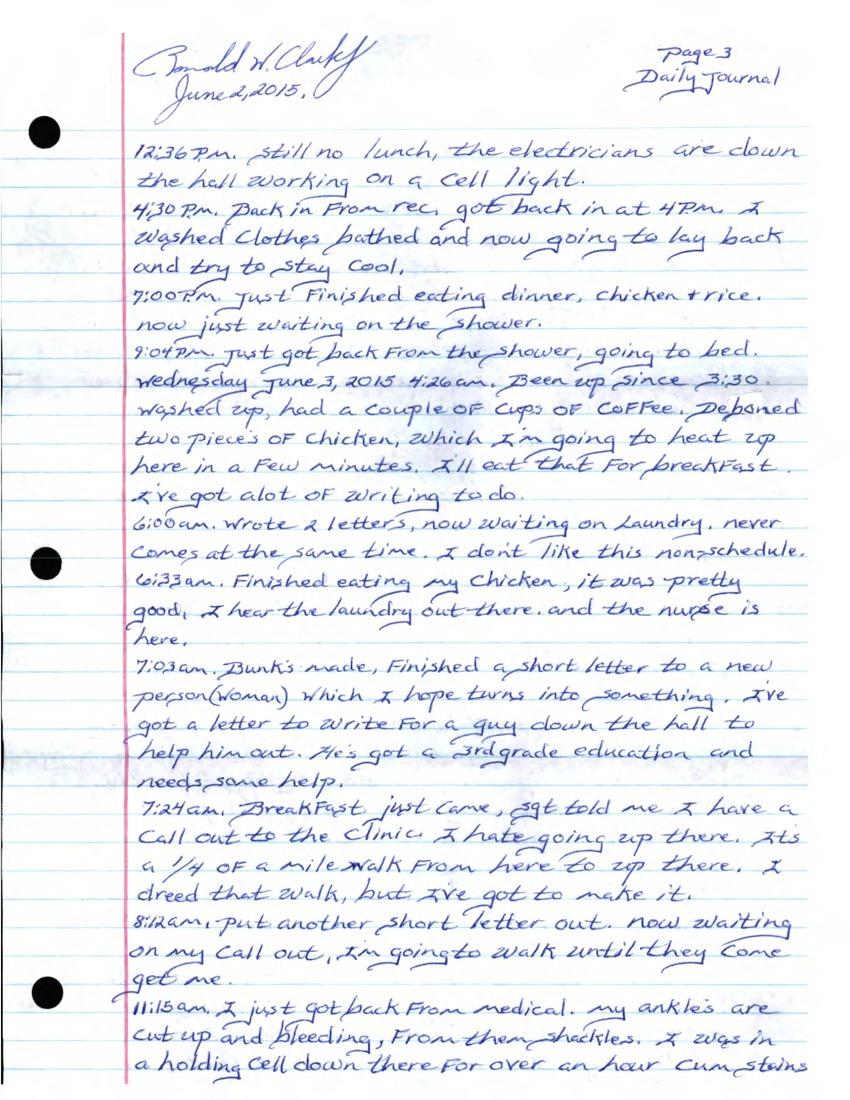 Ronald W. Clark Jr
June 2, 2015.
Page 3
Daily Journal
12:36 P.m. still no lunch, the electricians are down
the hall working on a cell light.
4:30 P.m. Back in From rec, got back in at 4P.m. I
washed clothes bathed and now going to lay back
and try to stay cool,
7:00P.m. Just Finished eating dinner, chicken + rice.
now just waiting on the shower.
9:04P.m. Just got back From the shower, going to bed.
Wednesday June 3, 2015 4:26am. Been up since 3:30.
washed up, had a couple OF cups OF CoFFee. Deboned
two piece's OF chicken, which I'm going to heat up
here in a Few minutes. I'll eat that For breakFast.
I've got alot OF writing to do.
6:00am. Wrote 2 letters, now waiting on Laundry, never
comes at the same time. I don't like this non-schedule.
6:33am. Finished eating my chicken, it was pretty
good, I hear the laundry out there. and the nurse is
here,
7:03am. Bunk's made, Finished a short letter to a new
person(woman) which I hope turns into something. I've
got a letter to write For a guy down the hall to
help him out. He's got a 3rd grade education and
needs some help.
7:24am. BreakFast just came, sgt told me I have a
call out to the clinic. I hate going up there. It's
a 1/4 OF a mile walk From here to up there. I
dreed that walk, but I've got to make it.
8:12am, put another short letter out. now waiting
on my call out, I'm going to walk until they come
get me.
11:15am. I just got back From medical. my ankle's are
cut up and bleeding, From them shackles. I was in
a holding cell down there For over an hour cum stains